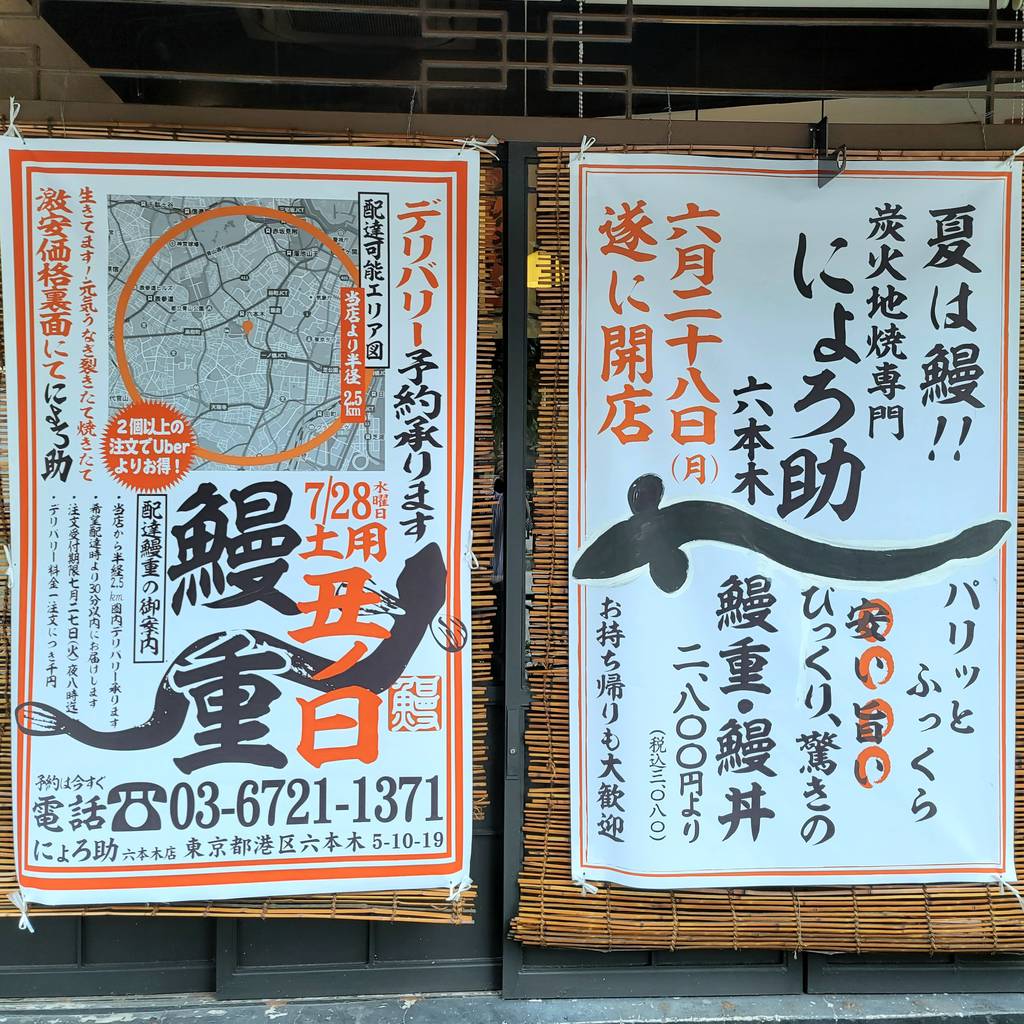 デリバリー予約承ります
配達可能エリア図
当店より半径2.5km
生きてます!元気うなぎ裂きたて焼きたて
激安価格裏面にてにょろ助
2個以上の
注文でUber
よりお得!
六本木
表参道
赤坂見附
7/28水曜日
土用
丑ノ日
鰻重
鰻
配達鰻重の御案内
・当店から半経2.5km圏内デリバリー承ります
・希望配達時より30分以内にお届けします
・注文受付期限七月二七日(火)夜八時迄
・デリバリー料金一注文につき千円
予約は今すぐ
電話☎03-6721-1371
にょろ助 六本木店 東京都港区六本木 5-10-19
夏は鰻!!
炭火地焼専門
にょろ助
六本木
六月二十八日(月)
遂に開店
パリッと
ふっくら
安い旨い
ひっくり、驚きの
鰻重・鰻丼
二、八〇〇円より
(税込三、〇八〇)
お持ち帰りも大歓迎